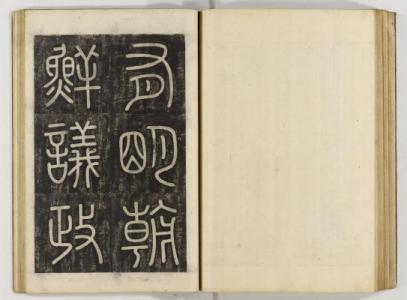 有朙朝
鮮議政